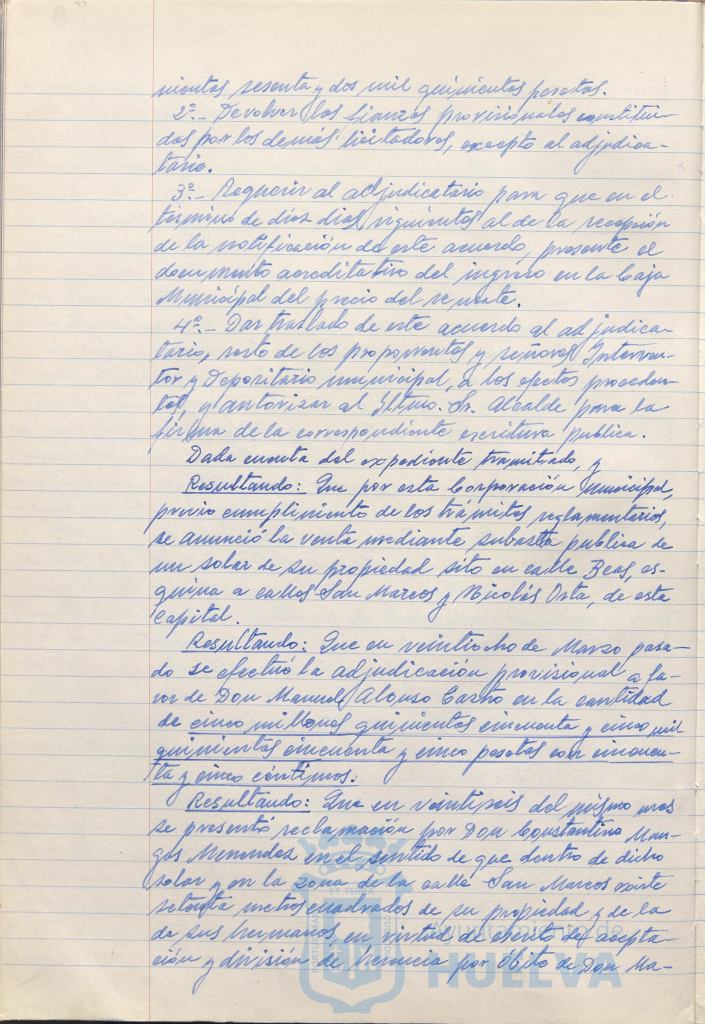 nientas sesenta y dos mil quinientas pesetas.
2º.- Devolver las fianzas provisionales constitui-
das por los demás licitadores, excepto al adjudica-
tario.
3º.- Requerir al adjudicatario para que en el
término de diez días siguientes al de la recepción
de la notificación de este acuerdo, presente el
documento acreditativo del ingreso en la Caja
Municipal del precio del remate.
4º.- Dar traslado de este acuerdo al adjudica-
tario, resto de los proponentes y señores Interven-
tor y Depositario municipal, a los efectos proceden-
tes, y autorizar al Iltmo. Sr. Alcalde para la
firma de la correspondiente escritura publica.
Dada cuenta del expediente tramitado, y
Resultando: Que por esta Corporación Municipal,
previo cumplimiento de los trámites reglamentarios,
se anunció la venta mediante subasta publica de
un solar de su propiedad sito en calle Beas, es-
quina a calles San Marcos y Nicolás Orta, de esta
Capital.
Resultando: Que en veintiocho de Marzo pasa-
do se efectuó la adjudicación provisional a fa-
vor de Don Manuel Alonso Castro en la cantidad
de cinco millones quinientas cincuenta y cinco mil
quinientas cincuenta y cinco pesetas con cincuen-
ta y cinco céntimos.
Resultando: Que en veintiseis del mismo mes
se presentó reclamación por Don Constantino Mon-
gós Menendez en el sentido de que dentro de dicho
solar y en la zona de la calle San Marcos existe
setenta metros cuadrados de su propiedad y de la
de sus hermanos, en virtud de escrito de acepta-
ción y división de herencia por óbito de Don Ma-
Ayuntamiento de
HUELVA